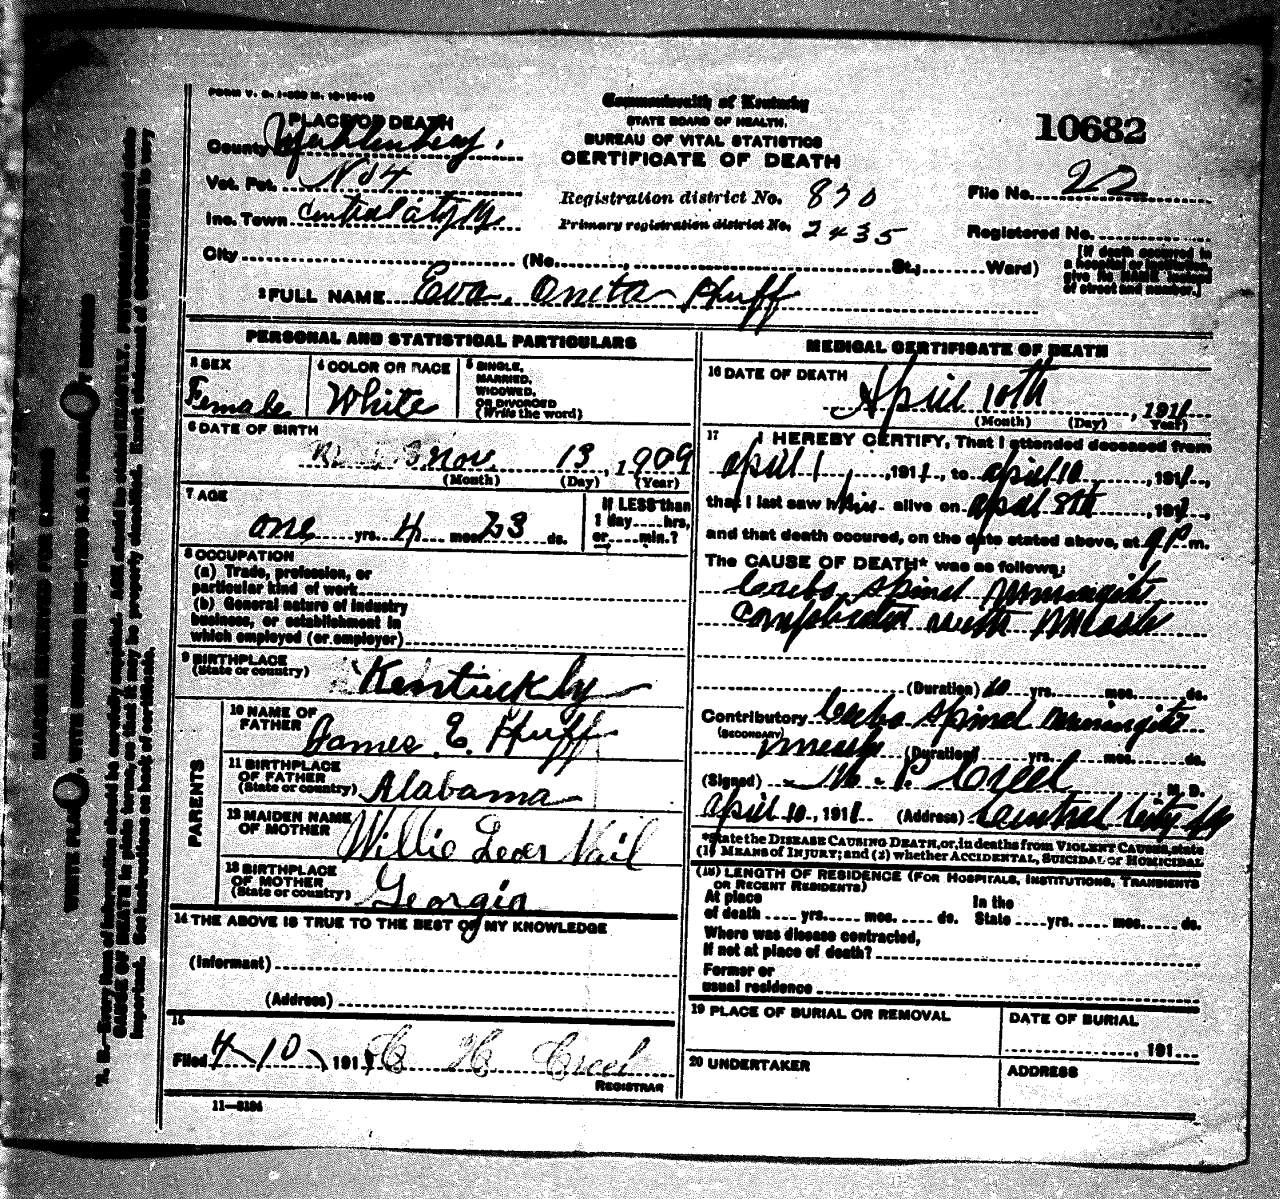 FORM V. S. 1-
Commonwealth of Kentucky
STATE BOARD OF HEALTH.
BUREAU OF VITAL STATISTICS
CERTIFICATE OF DEATH
10682
PLACE OF DEATH
County Muhlenberg.
Vot. Pct. No 4
Inc. Town Central City Ky.
Registration district No. 870
Primary registration district No. 2435
File No. 22
Registered No.
City (No. St.; Ward)
[If death occurred in
a
give its NAME instead
of street and number.]
2 FULL NAME Eva. Onita Huff
PERSONAL AND STATISTICAL PARTICULARS
3 SEX
Female
4 COLOR OR RACE
White
5 SINGLE,
MARRIED,
WIDOWED,
OR DIVORCED
(Write the word)
6 DATE OF BIRTH
Nov. 13, 1909
(Month) (Day) (Year)
7 AGE
one yrs. 4 mos. 23 ds.
If LESS than
1 day.....hrs,
or.....min.?
8 OCCUPATION
(a) Trade, profession, or
particular kind of work
(b) General nature of industry
business, or establishment in
which employed (or employer)
9 BIRTHPLACE
(State or country)
Kentuckly
PARENTS
10 NAME OF
FATHER
James E. Huff
11 BIRTHPLACE
OF FATHER
(State or country)
Alabama
12 MAIDEN NAME
OF MOTHER
Willie Leer Vail
13 BIRTHPLACE
OF MOTHER
(State or country)
Georgia
14 THE ABOVE IS TRUE TO THE BEST OF MY KNOWLEDGE
(Informant)
(Address)
15
Filed 4-10, 1911 C H Creel
REGISTRAR
11—5184
MEDICAL CERTIFICATE OF DEATH
16 DATE OF DEATH
April 10th, 1911
(Month) (Day) Year)
17 I HEREBY CERTIFY, That I attended deceased from
april 1, 1911, to april 10, 1911,
that I last saw him alive on april 8th, 1911,
and that death occured, on the date stated above, at 9 P m.
The CAUSE OF DEATH* was as follows:
Cerebo, spinal meningitis
complicated with measle
(Duration) 10 yrs. mos. ds.
Contributory Cerebo spinal meningitis
(SECONDARY)
measle (Duration) yrs. mos. ds.
(Signed) P. Creel M. D.
april 10, 1911 (Address) Central City Ky
*State the DISEASE CAUSING DEATH, or, in deaths from VIOLENT CAUSES, state
(1) MEANS OF INJURY; and (2) whether ACCIDENTAL, SUICIDAL or HOMICIDAL
(18) LENGTH OF RESIDENCE (FOR HOSPITALS, INSTITUTIONS, TRANSIENTS
OR RECENT RESIDENTS)
At place
of death ..... yrs. ..... mos. ..... ds.
In the
State ..... yrs. ..... mos. ..... ds.
Where was disease contracted,
If not at place of death?
Former or
usual residence
19 PLACE OF BURIAL OR REMOVAL
DATE OF BURIAL
, 191
20 UNDERTAKER
ADDRESS
MARGIN RESERVED FOR BINDING
N. B.—Every item of information should be carefully supplied. AGE should be stated EXACTLY. PHYSICIANS should state
CAUSE OF DEATH in plain terms, so that it may be properly classified. Exact statement of OCCUPATION is very
important. See instructions on back of certificate.